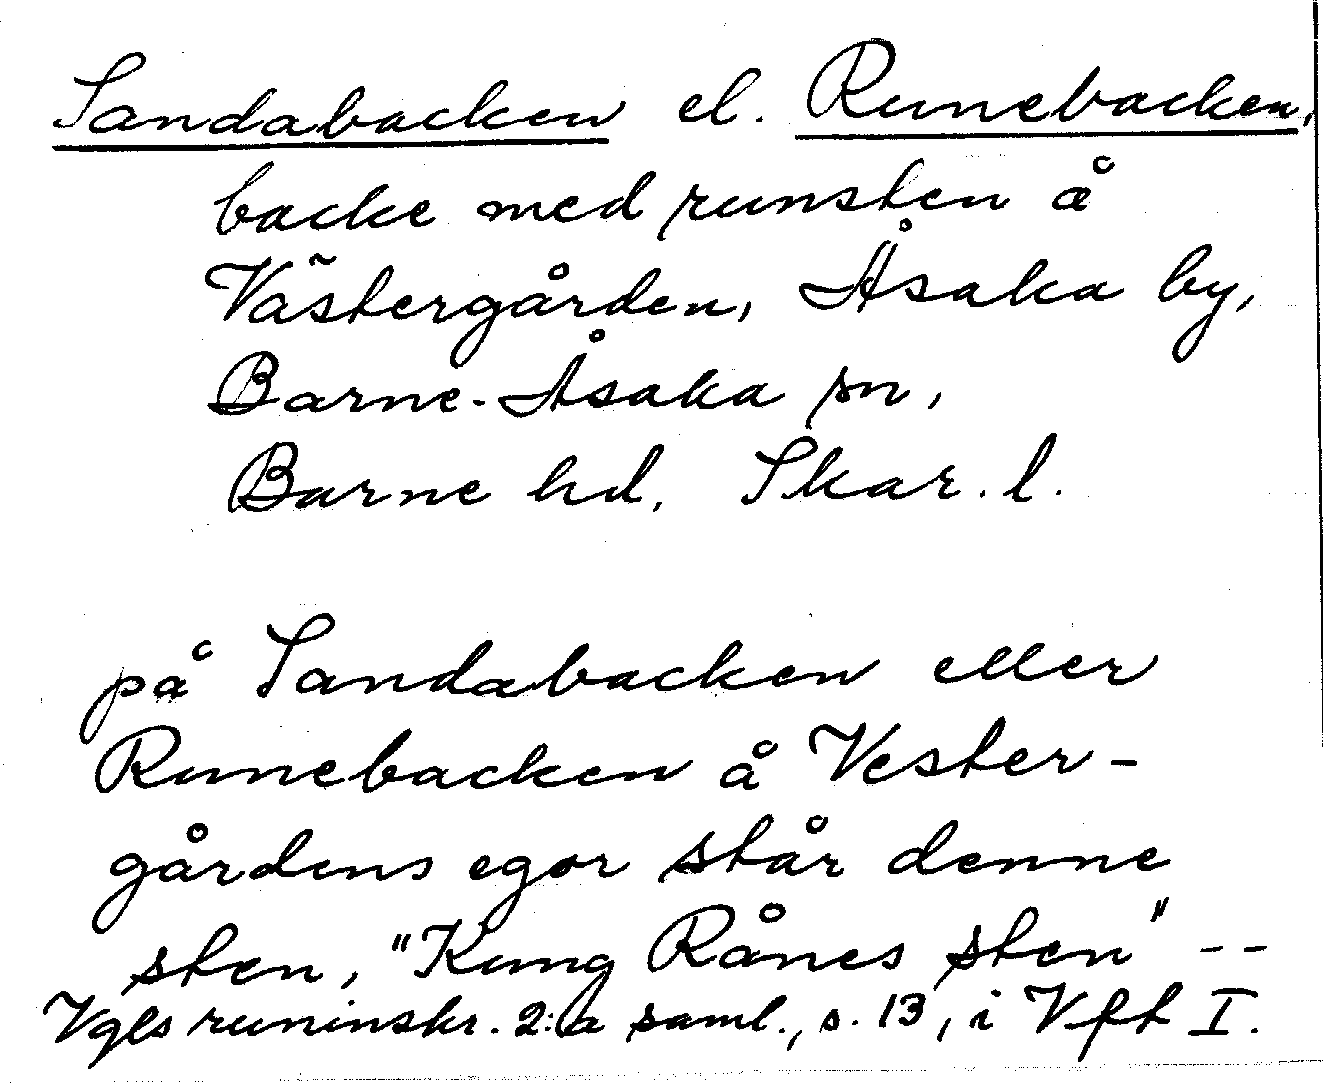 Sandabacken el. Runebacken,
backe med runsten å
Västergården, Åsaka by,
Barne-Åsaka sn,
Barne hd, Skar. l.
på Sandabacken eller
Runebacken å Vester-
gårdens egor står denne
sten, "Kung Rånes sten" --
Vgls runinskr. 2:a saml., s. 13, i Vft I.